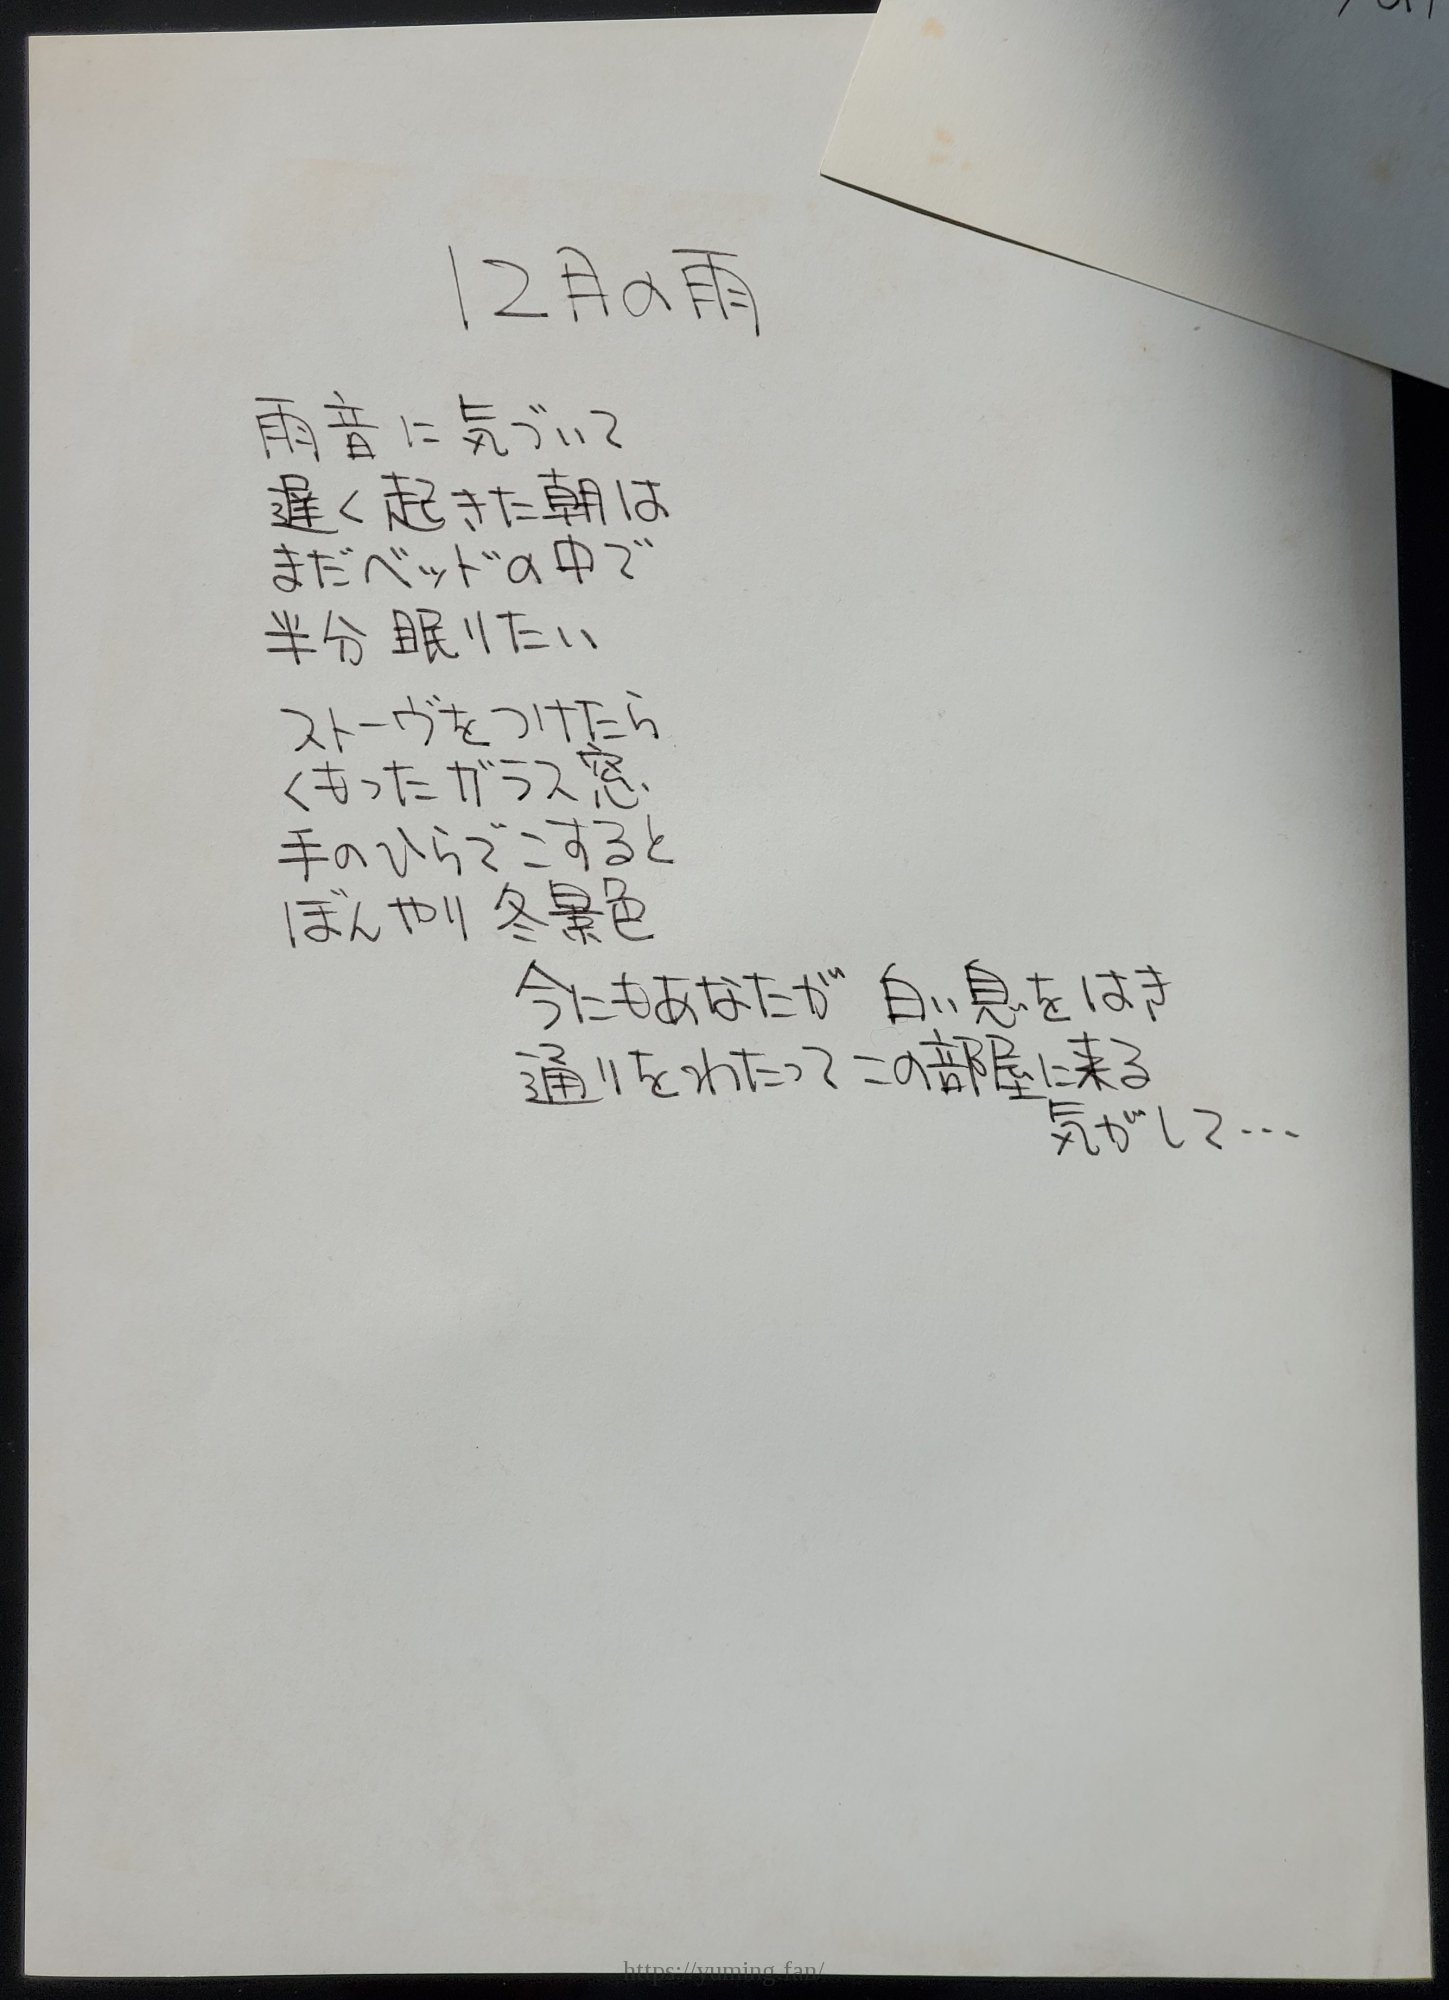 12月の雨
雨音に気づいて
遅く起きた朝は
まだベッドの中で
半分 眠りたい
ストーヴをつけたら
くもったガラス窓
手のひらでこすると
ぼんやり 冬景色
今にもあなたが 白い息をはき
通りをわたってこの部屋に来る
気がして…
https://yuming.fan/